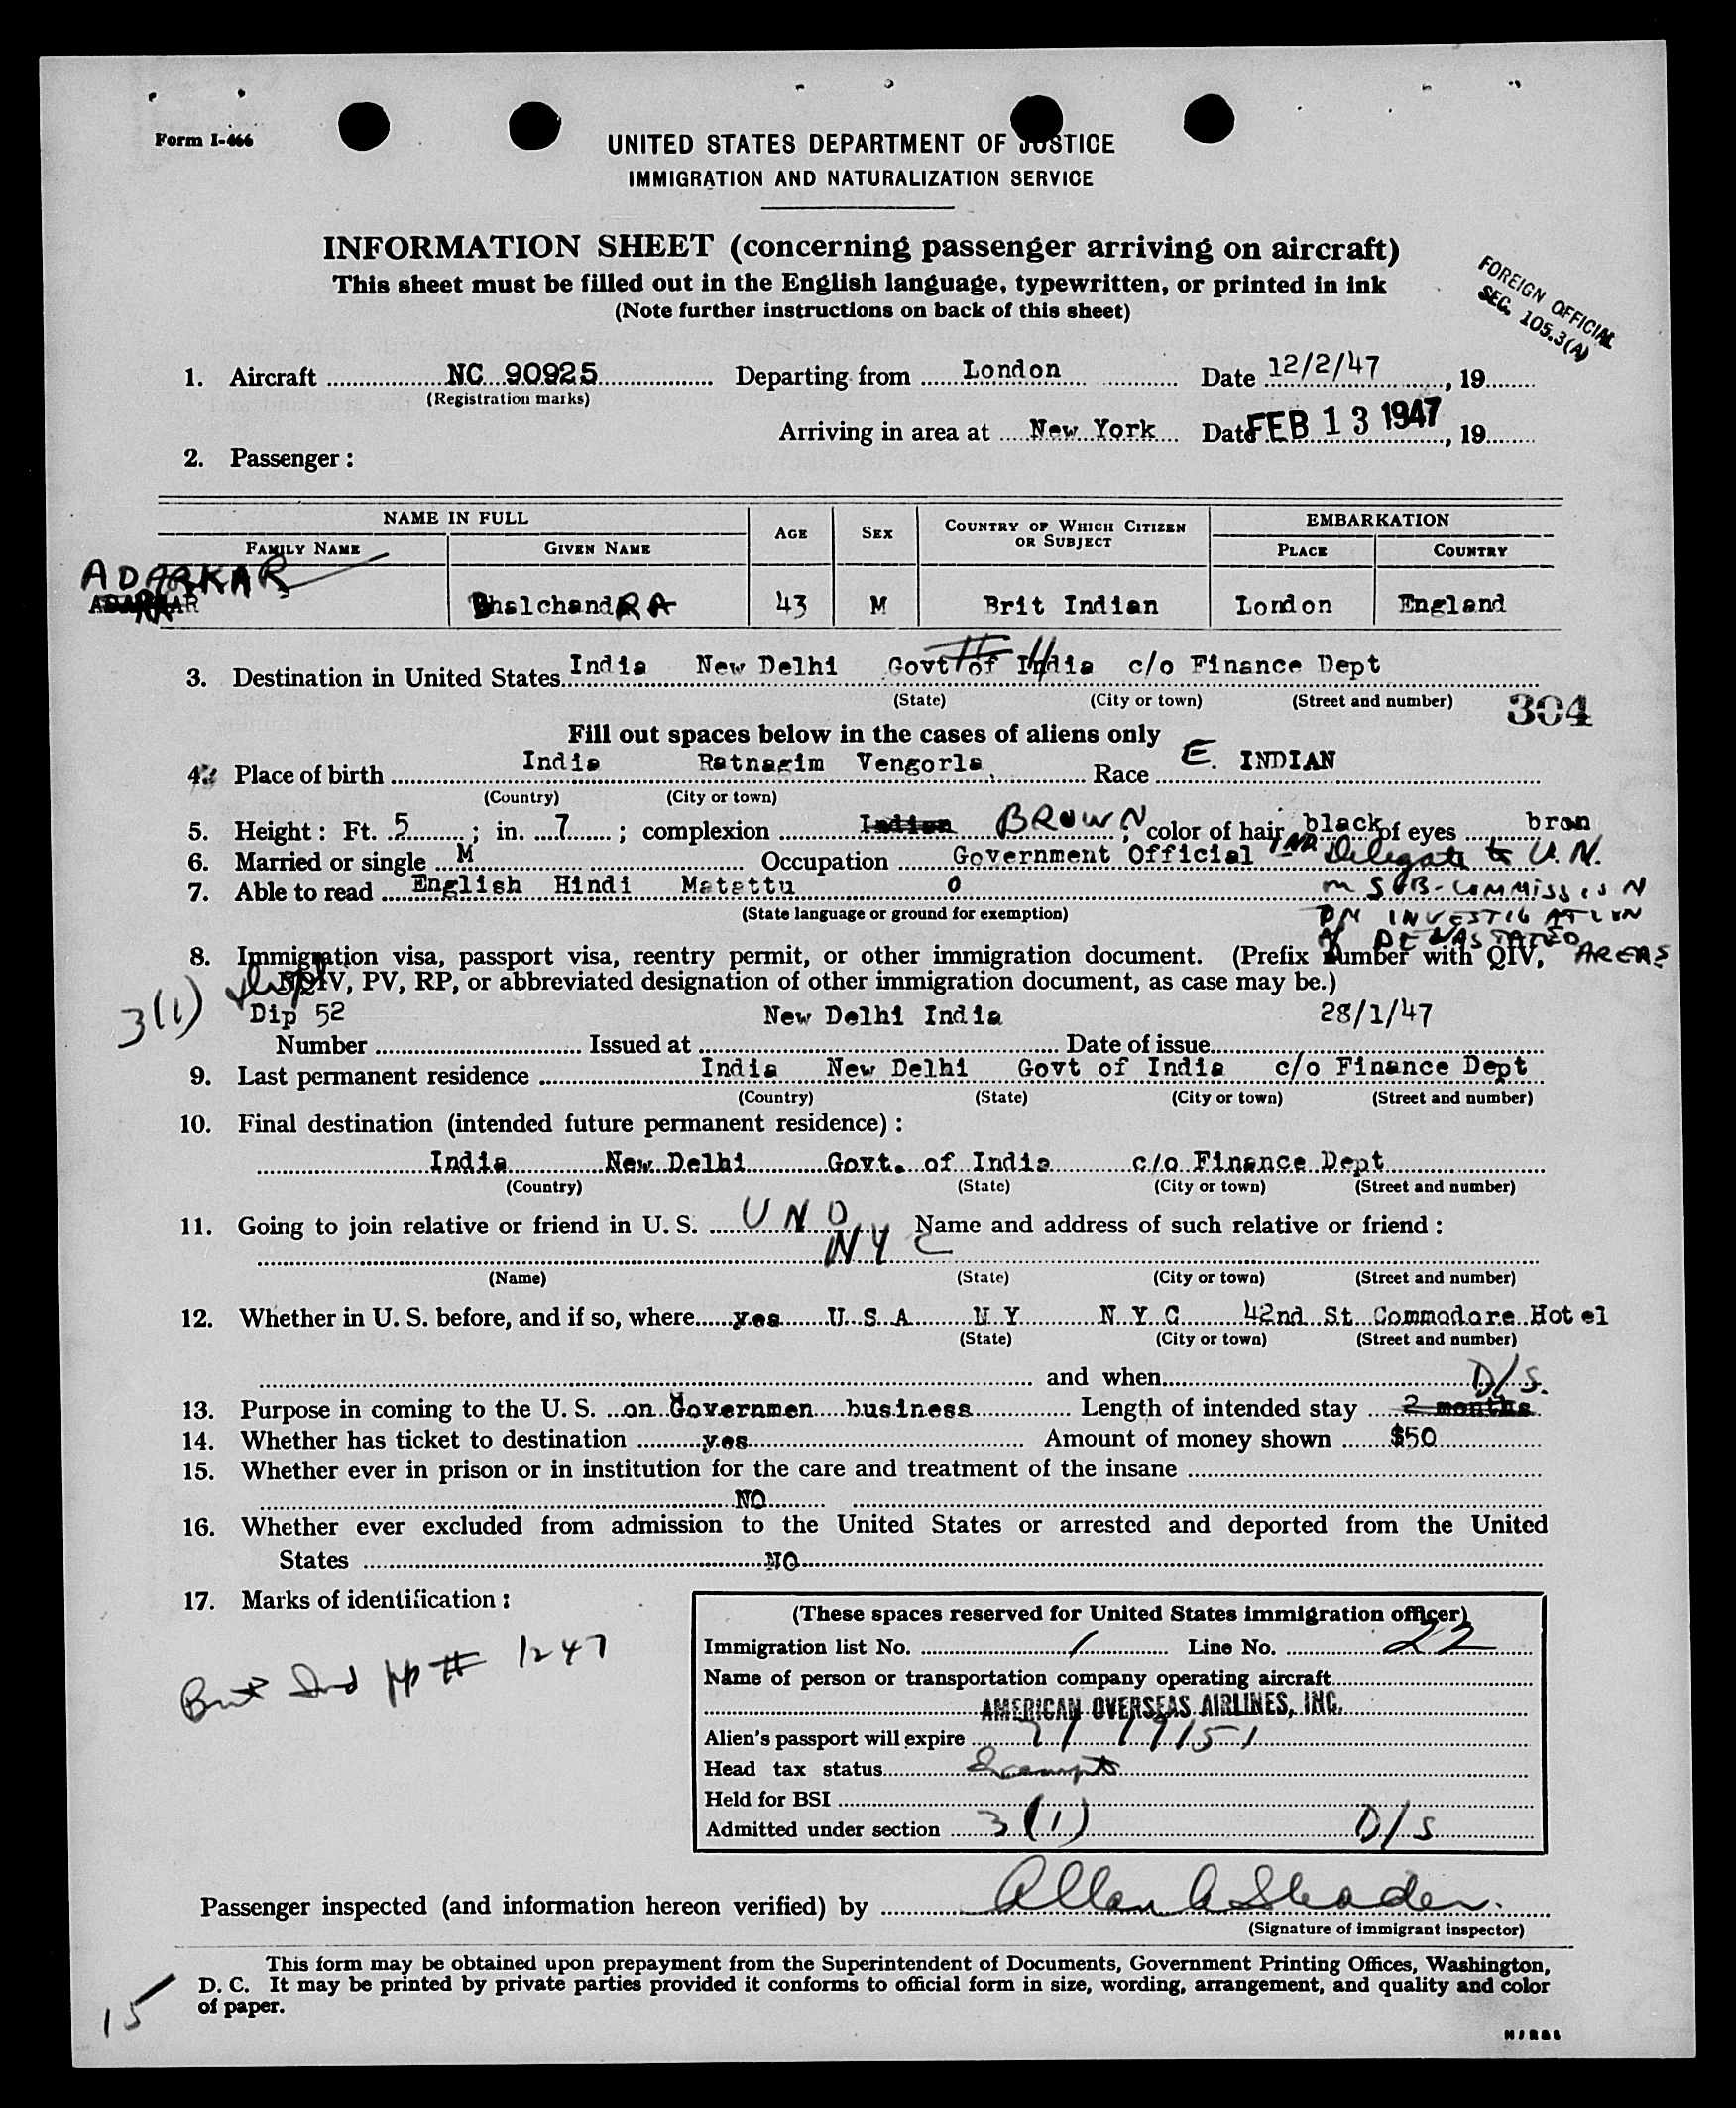 Form I-466
UNITED STATES DEPARTMENT OF JUSTICE
IMMIGRATION AND NATURALIZATION SERVICE
INFORMATION SHEET (concerning passenger arriving on aircraft)
This sheet must be filled out in the English language, typewritten, or printed in ink
(Note further instructions on back of this sheet)
FOREIGN OFFICIAL
SEC. 105.3(A)
1. Aircraft NC 90925 Departing from London Date 12/2/47, 19
(Registration marks)
Arriving in area at New York Date FEB 13 1947, 19
2. Passenger:
NAME IN FULL AGE SEX COUNTRY OF WHICH CITIZEN OR SUBJECT EMBARKATION
FAMILY NAME GIVEN NAME PLACE COUNTRY
ADARKAR
Bhalchandra 43 M Brit Indian London England
3. Destination in United States India New Delhi Govt of India c/o Finance Dept
(State) (City or town) (Street and number)
304
Fill out spaces below in the cases of aliens only
4. Place of birth India Ratnagim Vengorla Race E. INDIAN
(Country) (City or town)
5. Height: Ft. 5; in. 7; complexion Indian BROWN, color of hair black of eyes bron
6. Married or single M Occupation Government Official IND Delegate to U.N.
7. Able to read English Hindi Matattu 0 on SUB-COMMISSION
(State language or ground for exemption) ON INVESTIGATION
of DEVASTATED AREAS
8. Immigration visa, passport visa, reentry permit, or other immigration document. (Prefix number with QIV,
NQIV, PV, RP, or abbreviated designation of other immigration document, as case may be.)
3(1)
Dip 52 New Delhi India 28/1/47
Number Issued at Date of issue
9. Last permanent residence India New Delhi Govt of India c/o Finance Dept
(Country) (State) (City or town) (Street and number)
10. Final destination (intended future permanent residence):
India New Delhi Govt. of India c/o Finance Dept
(Country) (State) (City or town) (Street and number)
11. Going to join relative or friend in U. S. UNO Name and address of such relative or friend:
NYC
(Name) (State) (City or town) (Street and number)
12. Whether in U. S. before, and if so, where yes U S A N Y N Y C 42nd St Commodore Hotel
(State) (City or town) (Street and number)
and when D/S.
13. Purpose in coming to the U. S. on Governmen business Length of intended stay 2 months
14. Whether has ticket to destination yes Amount of money shown $50
15. Whether ever in prison or in institution for the care and treatment of the insane
NO
16. Whether ever excluded from admission to the United States or arrested and deported from the United
States NO
17. Marks of identification:
Brit Ind pp # 1247
(These spaces reserved for United States immigration officer)
Immigration list No. 1 Line No. 22
Name of person or transportation company operating aircraft
AMERICAN OVERSEAS AIRLINES, INC.
Alien's passport will expire
Head tax status Exempt
Held for BSI
Admitted under section 3(1) D/S
Passenger inspected (and information hereon verified) by Allan A Shader
(Signature of immigrant inspector)
This form may be obtained upon prepayment from the Superintendent of Documents, Government Printing Offices, Washington,
D. C. It may be printed by private parties provided it conforms to official form in size, wording, arrangement, and quality and color
of paper.
15